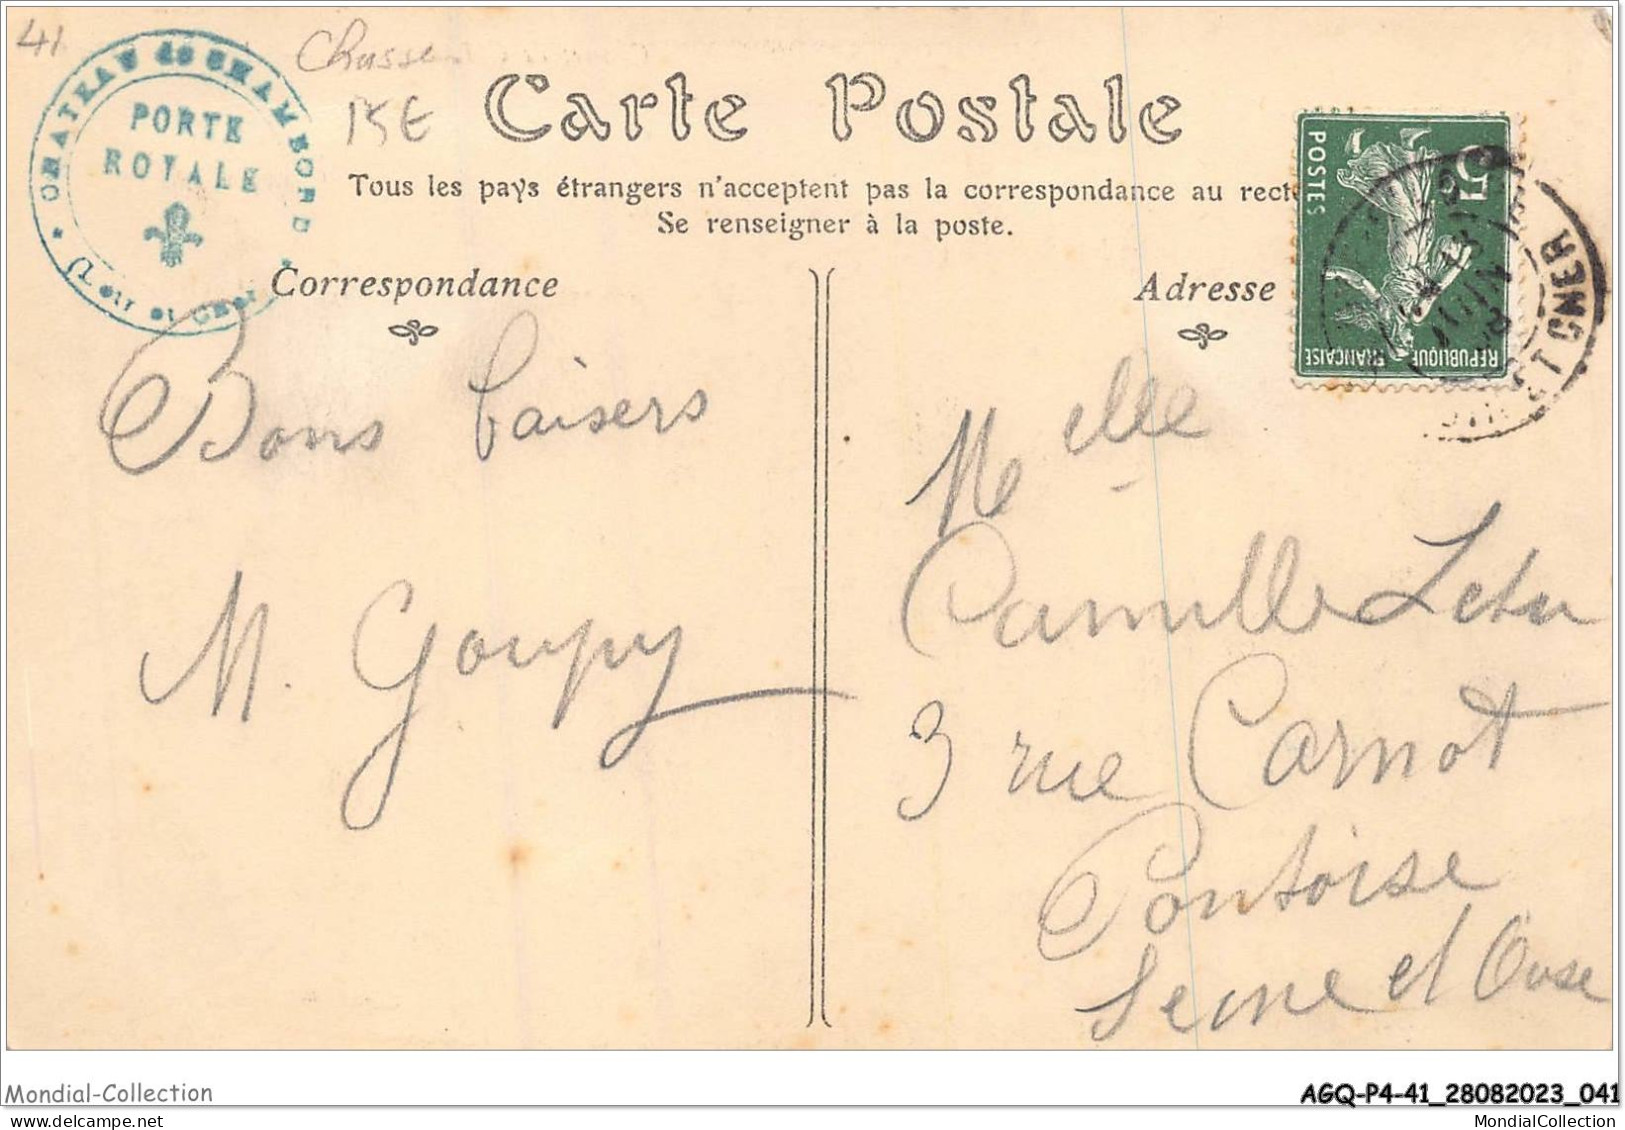 41
Chasse
15 €
CHATEAU de CHAMBORD
PORTE
ROYALE
(Loir et Cher)
Carte Postale
Tous les pays étrangers n'acceptent pas la correspondance au rect
Se renseigner à la poste.
Correspondance
Adresse
5
POSTES
REPUBLIQUE FRANÇAISE
Bons baisers
M. Goupy
Melle
Camille Letu
3 rue Carnot
Pontoise
Seine et Oise
Mondial-Collection
AGQ-P4-41_28082023_041
www.delcampe.net
MondialCollection